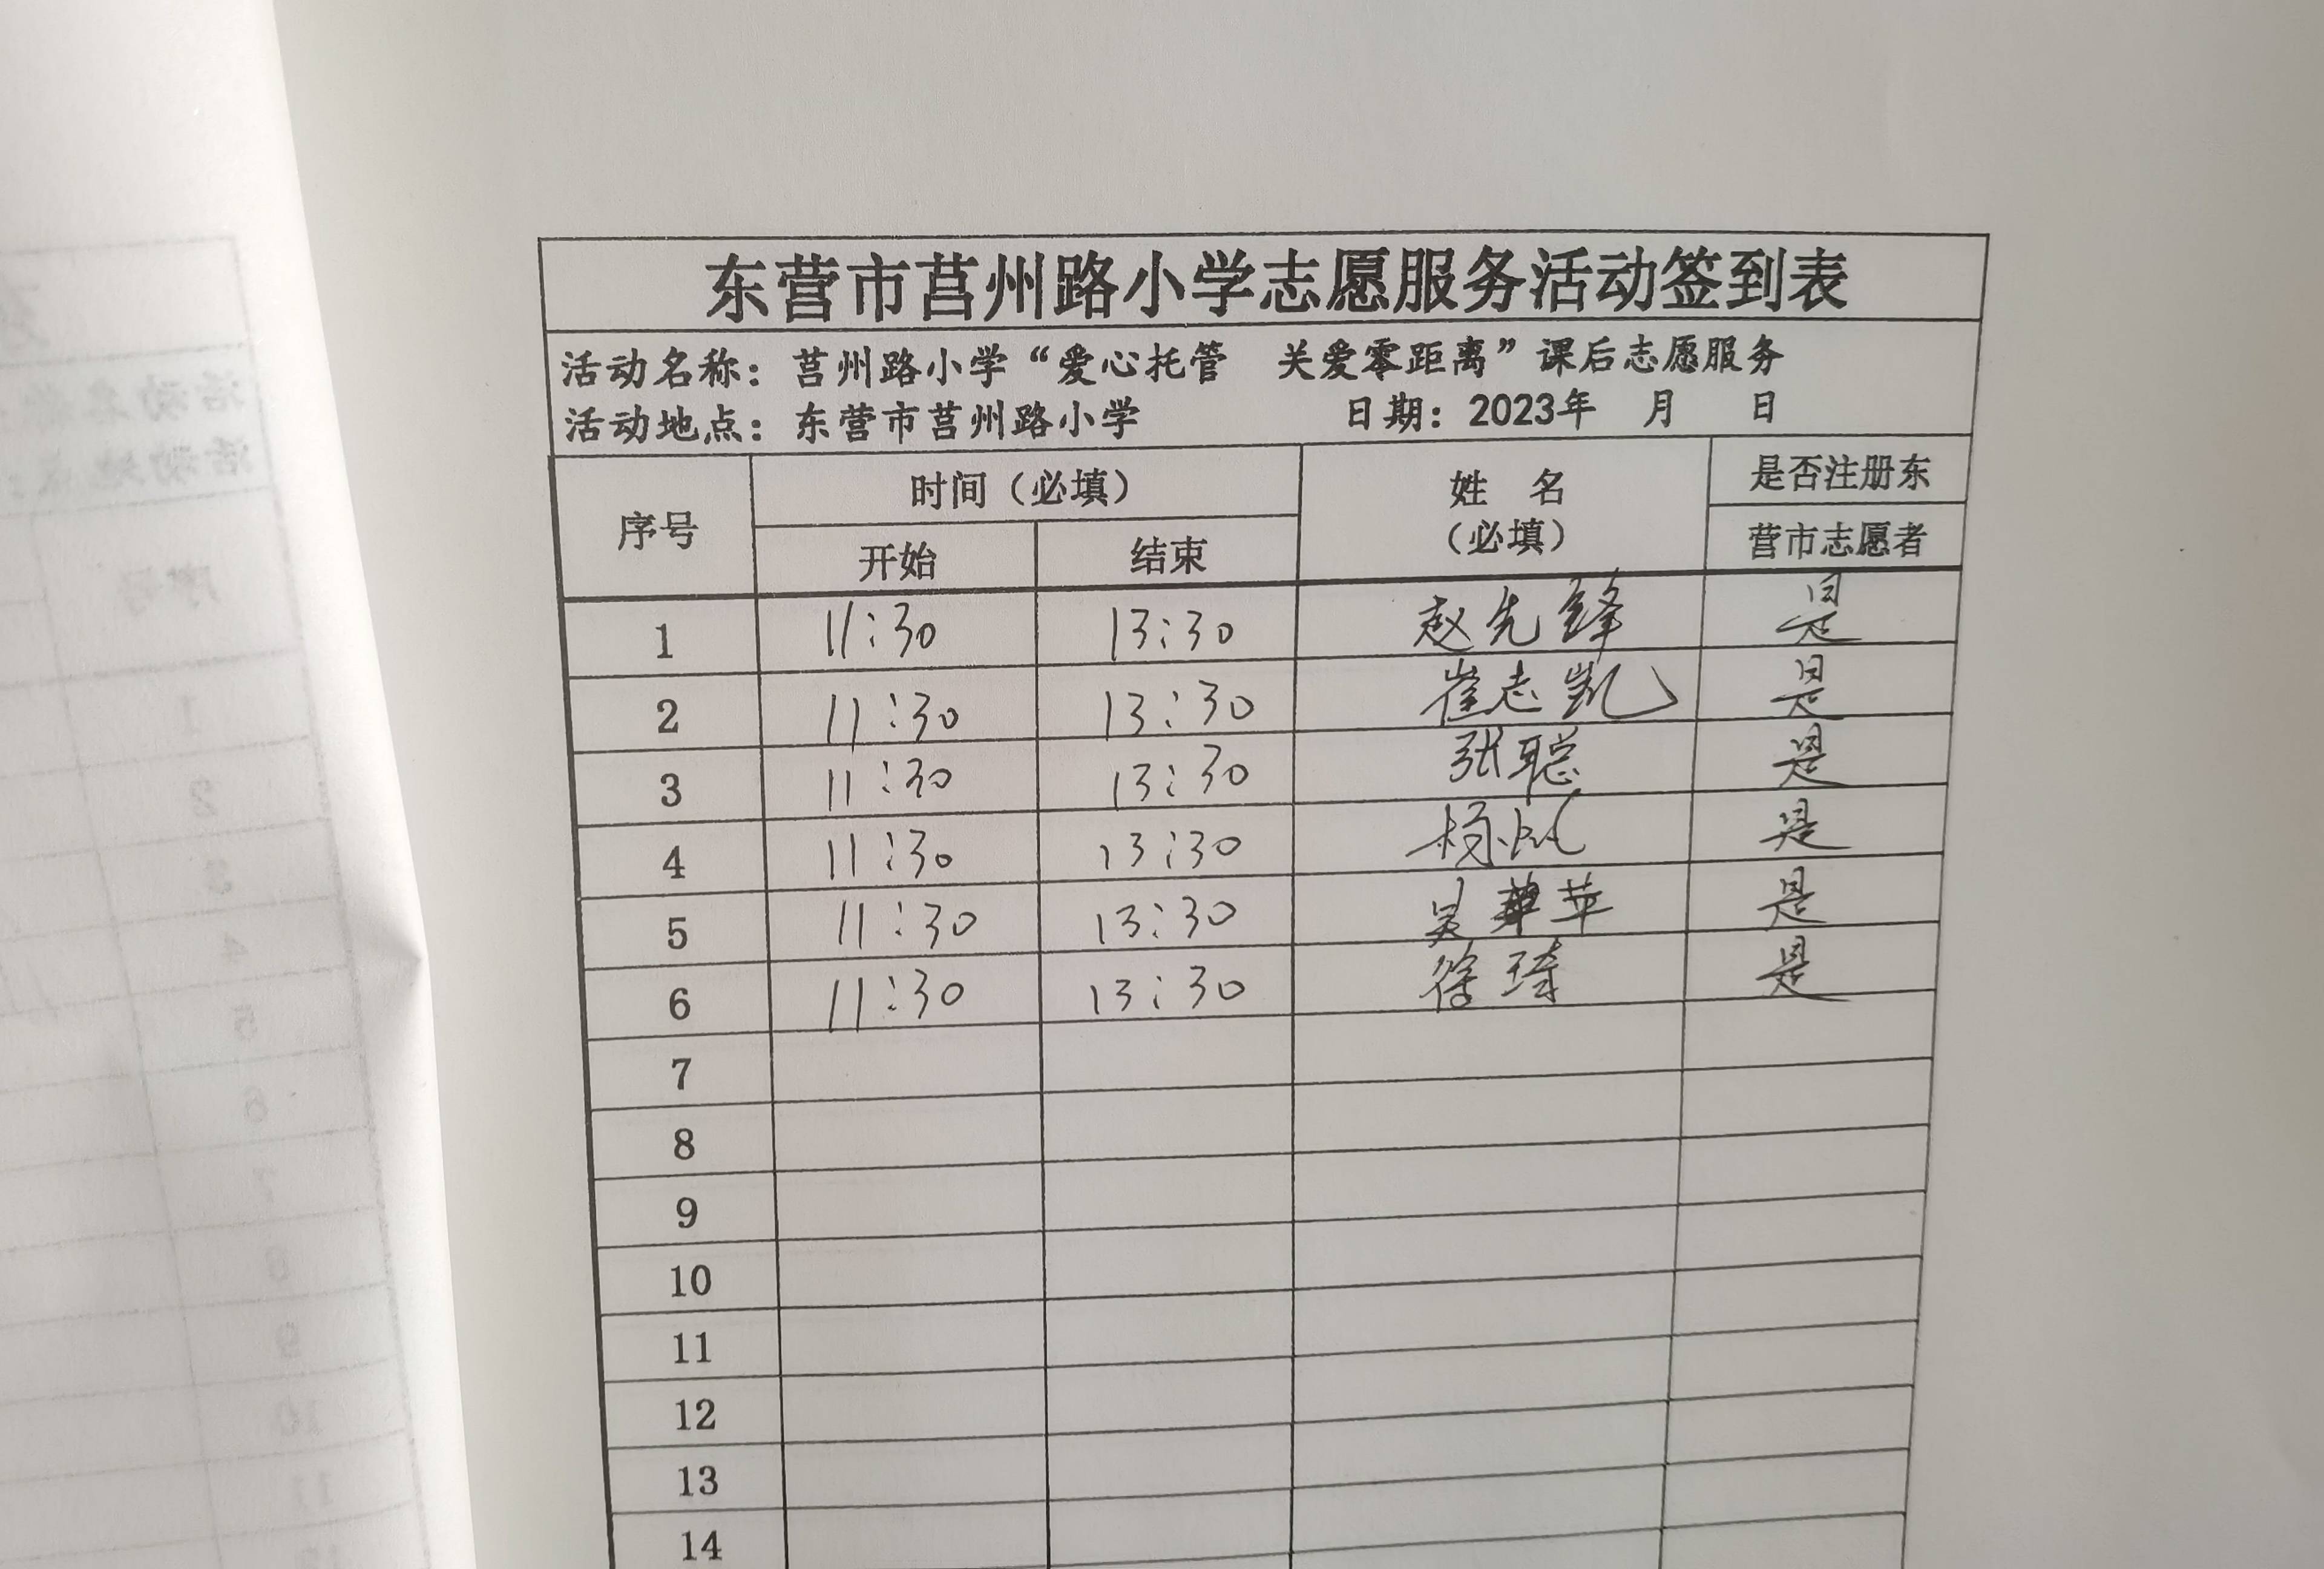 东营市莒州路小学志愿服务活动签到表
活动名称：莒州路小学“爱心托管 关爱零距离”课后志愿服务
活动地点：东营市莒州路小学 日期：2023年 月 日
序号 时间（必填） 姓 名（必填） 是否注册东营市志愿者
开始 结束
1 11:30 13:30 赵先锋 是
2 11:30 13:30 崔志凯 是
3 11:30 13:30 张聪 是
4 11:30 13:30 杨 是
5 11:30 13:30 吴苹 是
6 11:30 13:30 徐琦 是
7
8
9
10
11
12
13
14